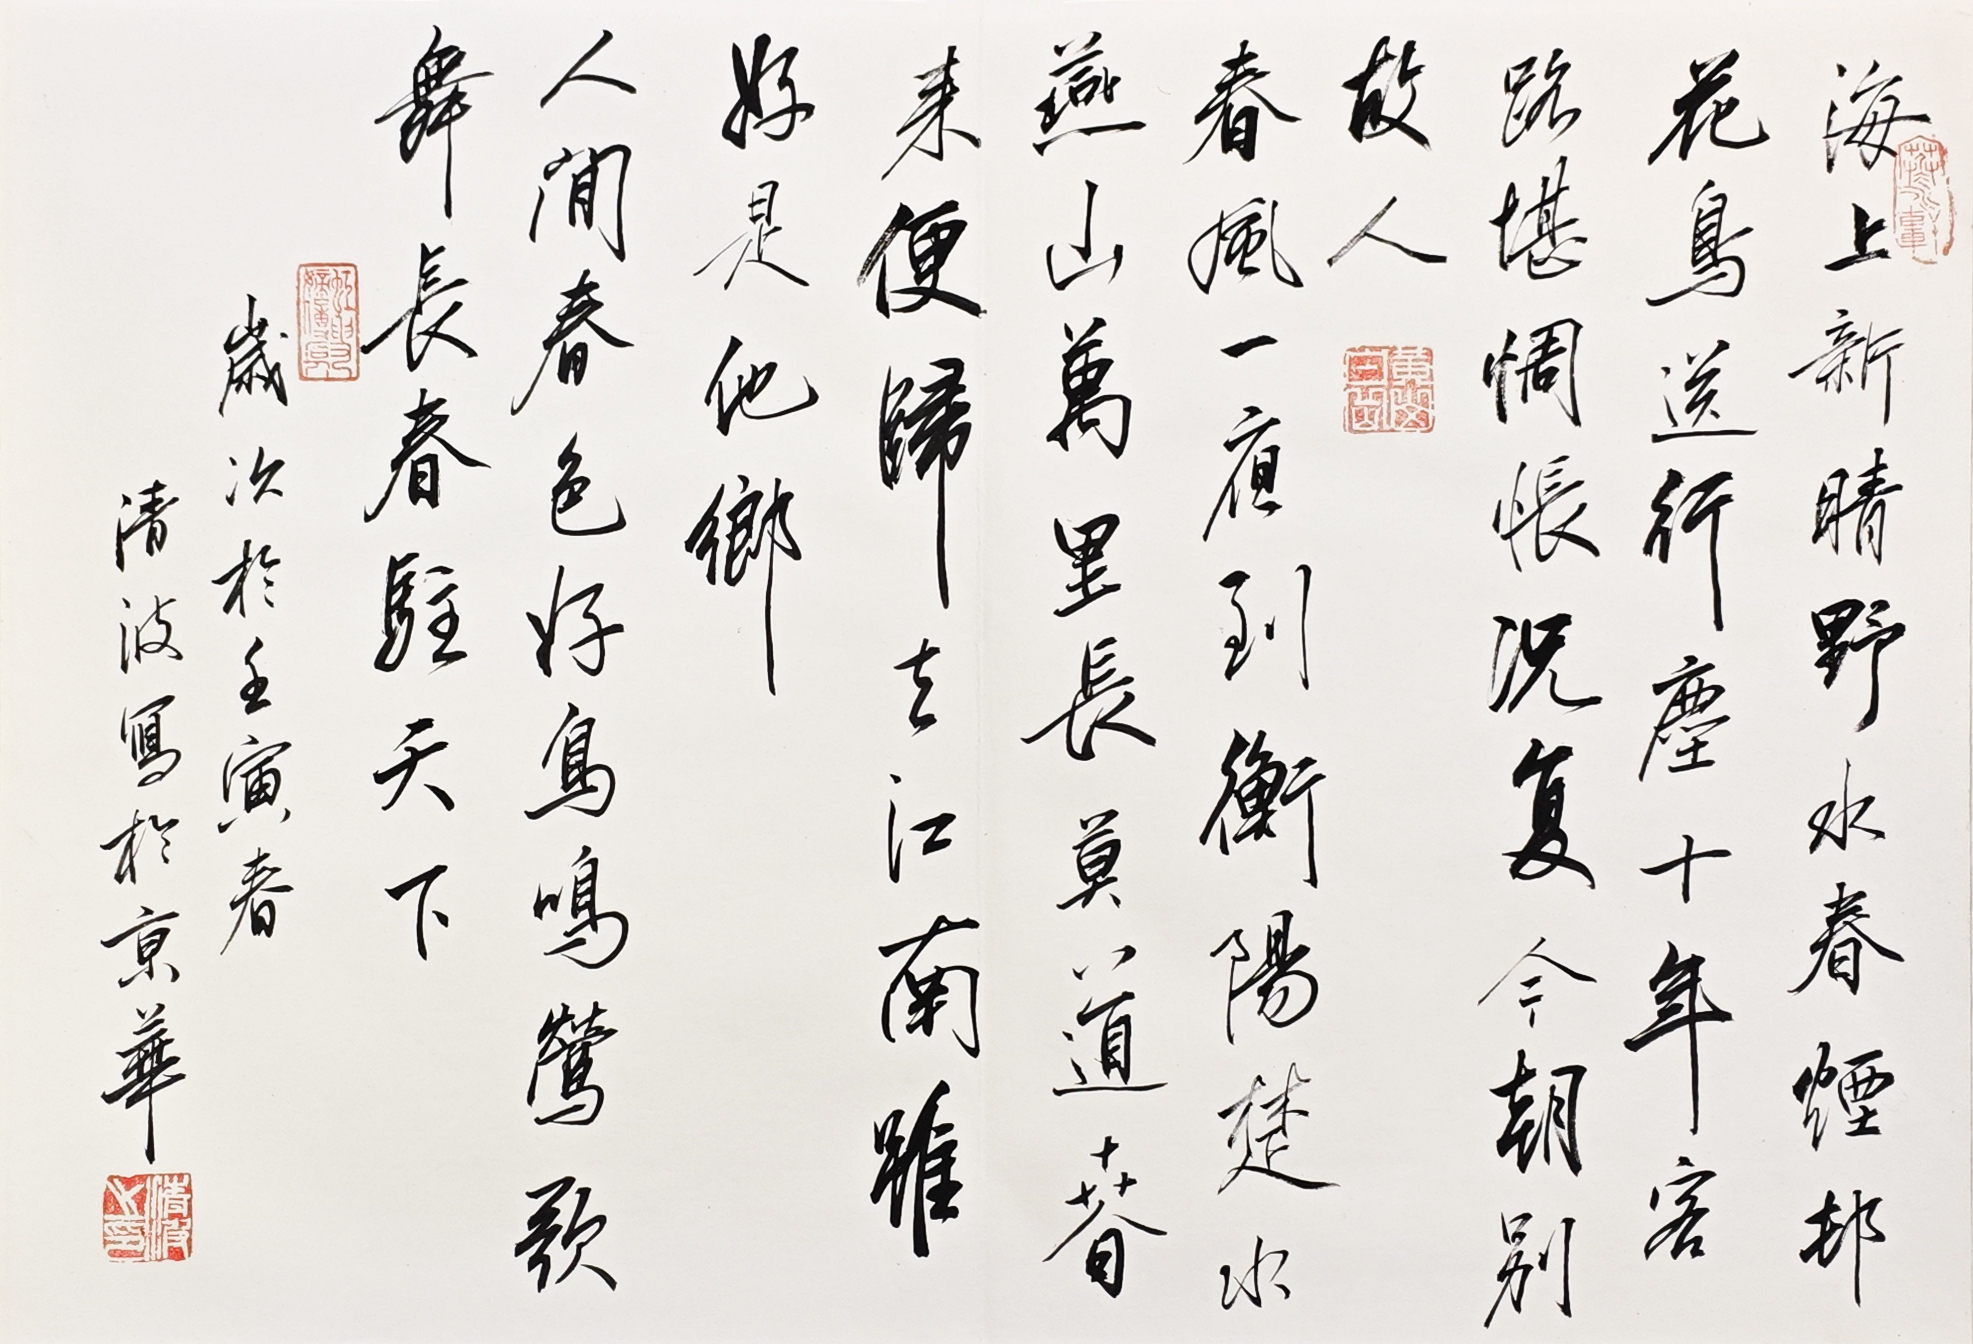 海上新晴野水春煙邨
花鳥送行塵十年客
路堪惆悵況复今朝別
故人
春風一夜到衡陽楚水
燕山萬里長莫道春
来便歸去江南雖
好是他鄉
人間春色好鳥鳴鶯歌
舞長春駐天下
歲次於壬寅春
清波寫於京華